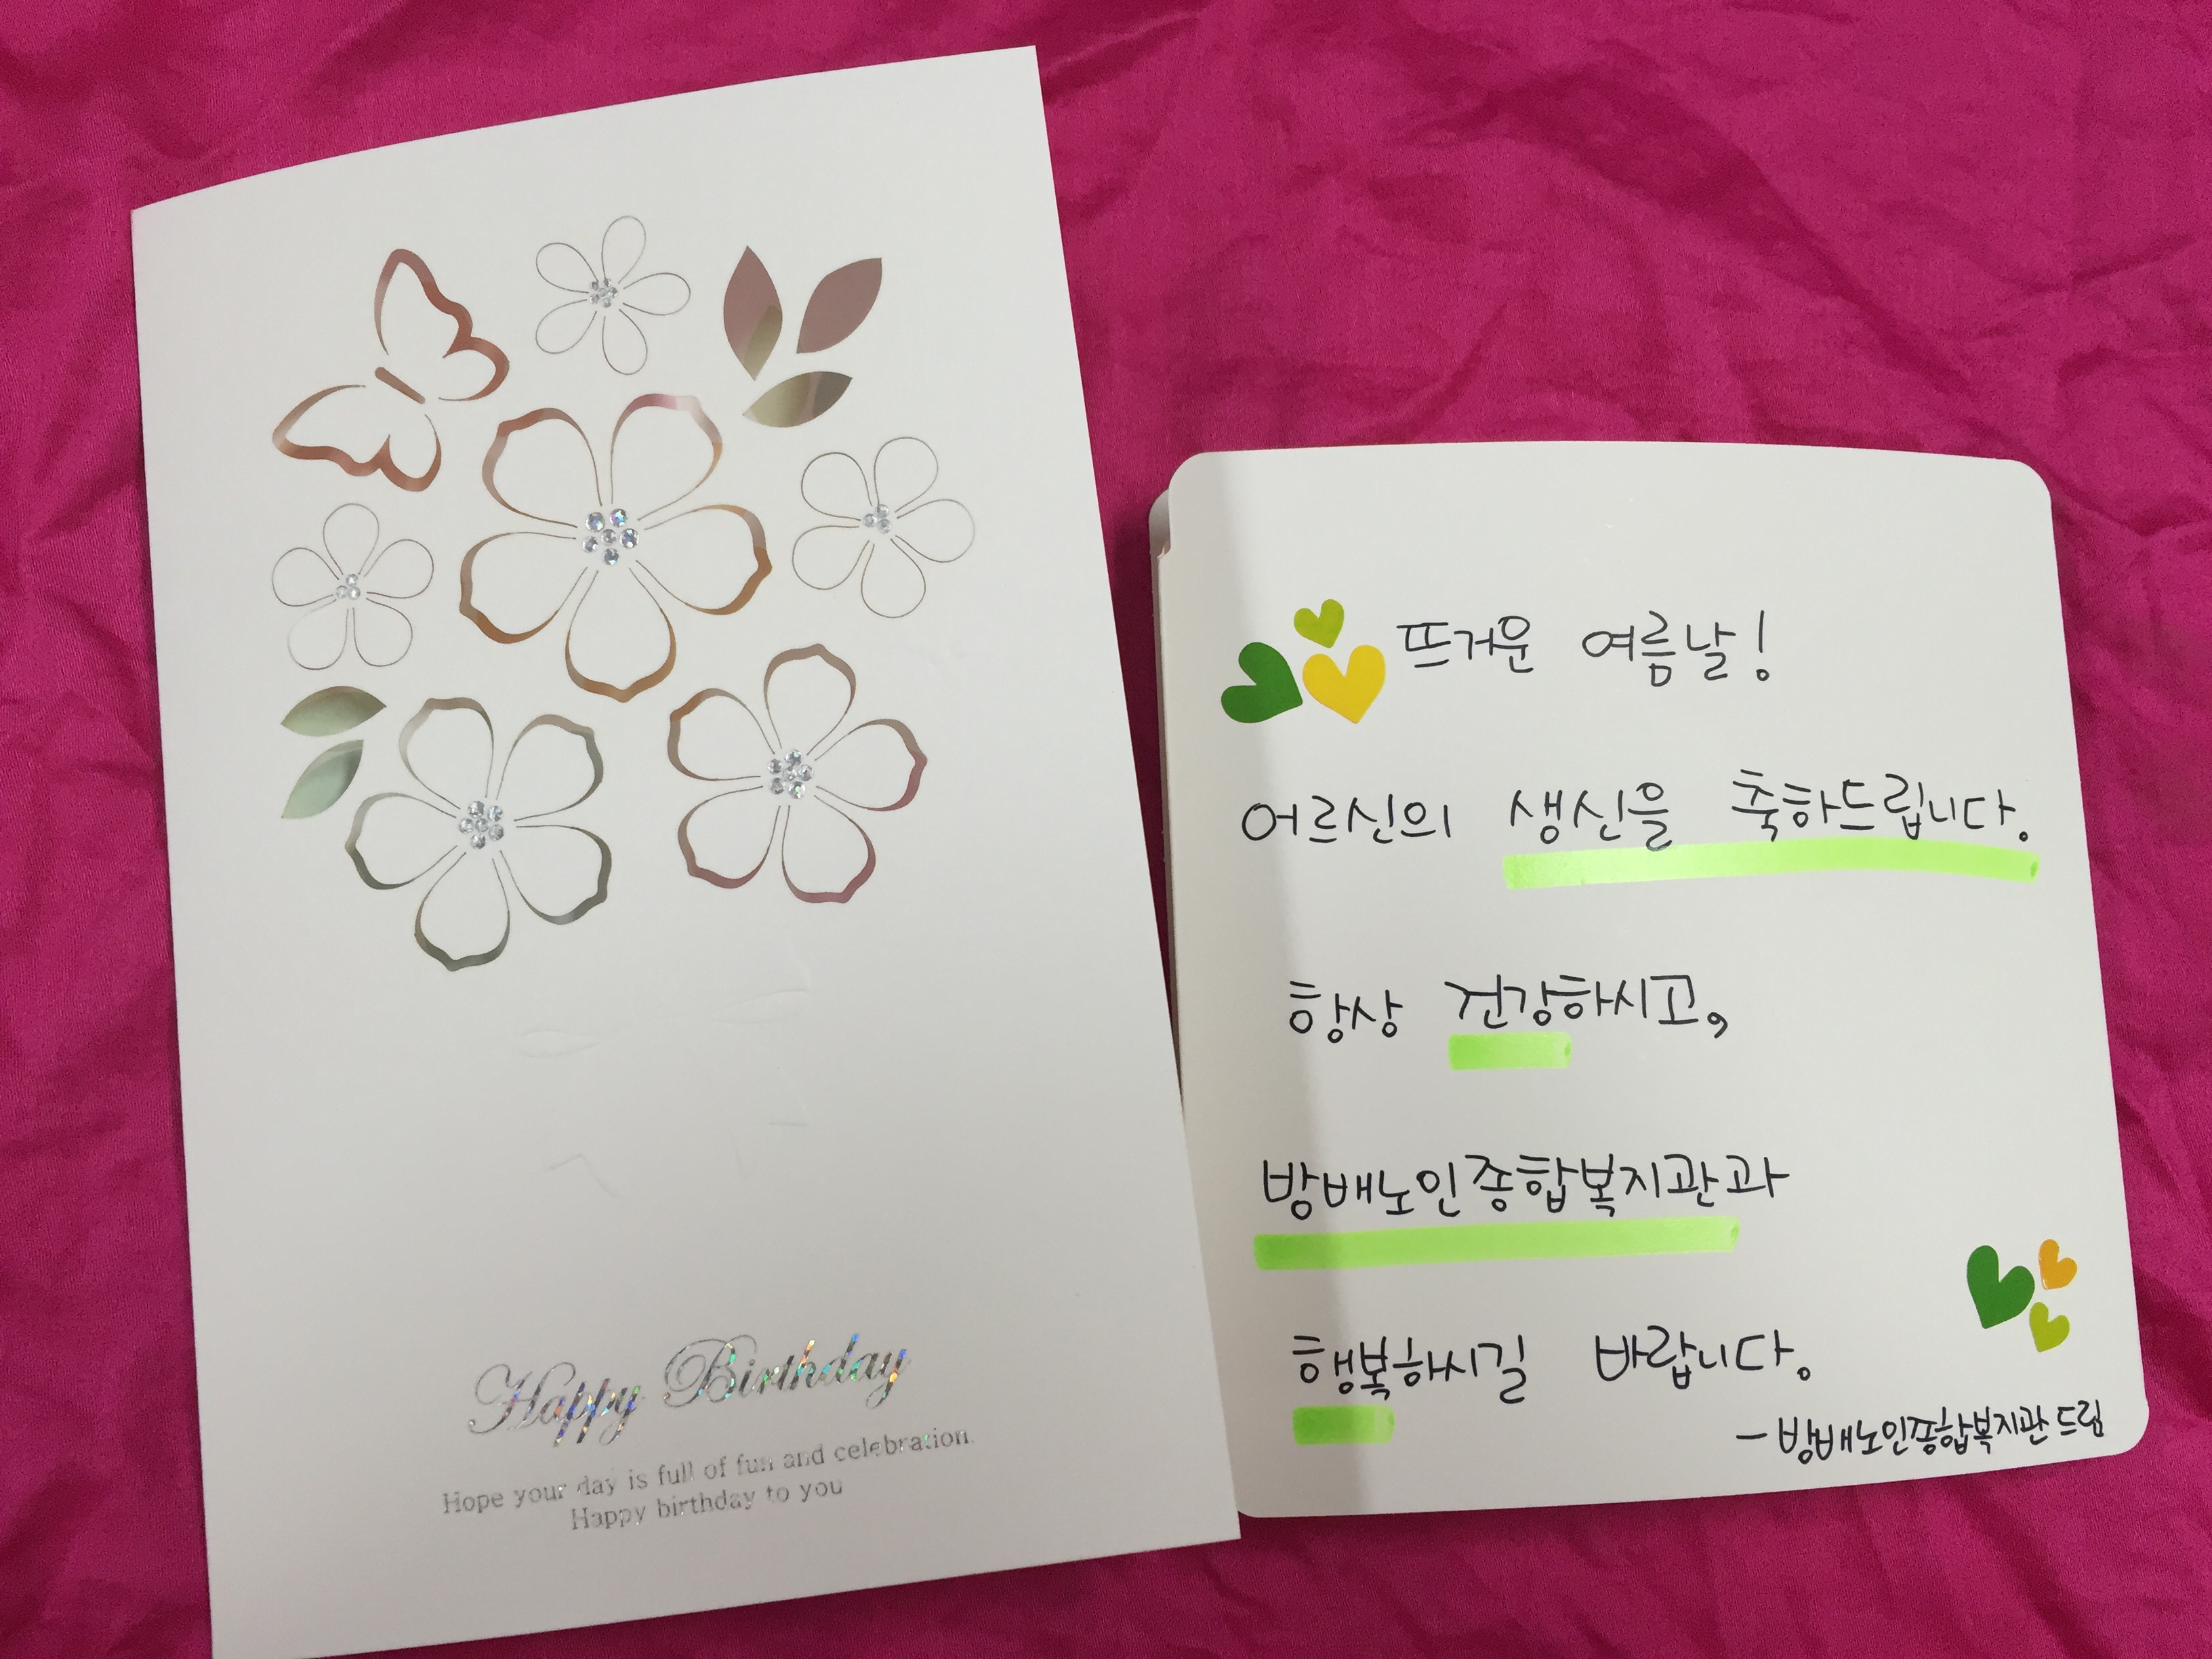 Happy Birthday
Hope your day is full of fun and celebration.
Happy birthday to you
뜨거운 여름날!
어르신의 생신을 축하드립니다.
항상 건강하시고,
방배노인종합복지관과
행복하시길 바랍니다.
- 방배노인종합복지관 드림